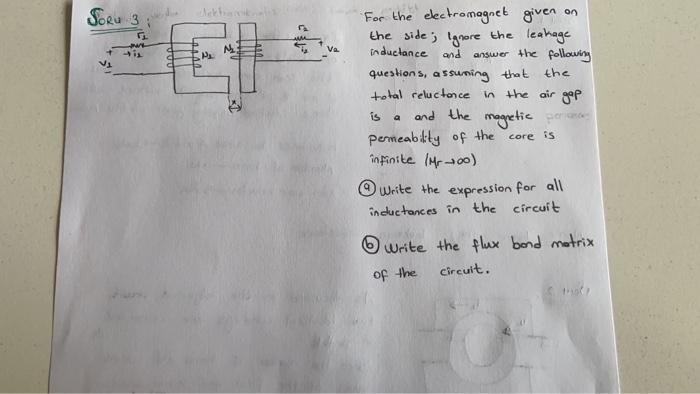 SORU 3;
r1
+ →i1
V1
N1
N2
r2
i2
+
V2
-
x
For the electromagnet given on
the side; Ignore the leakage
inductance and answer the following
questions, assuming that the
total reluctance in the air gap
is a and the magnetic
permeability of the core is
infinite (Mr→∞)
(a) Write the expression for all
inductances in the circuit
(b) Write the flux bond matrix
of the circuit.